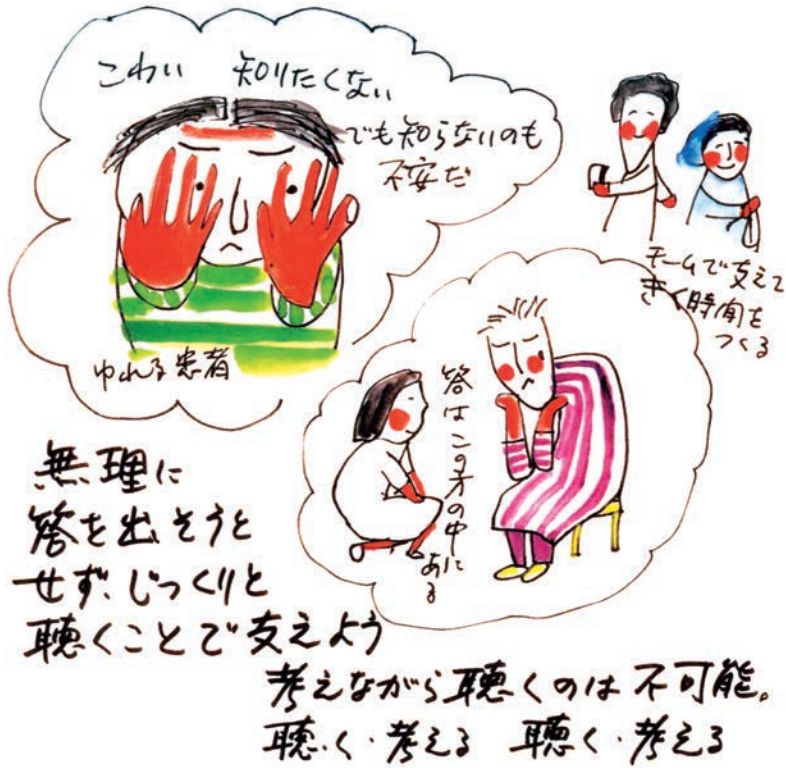 こわい 知りたくない
でも知らないのも
不安だ
ゆれる患者
チームで支えて
きく時間を
つくる
答はこの方の中に
ある
無理に
答を出そうと
せず、じっくりと
聴くことで支えよう
考えながら聴くのは不可能。
聴く・考える 聴く・考える